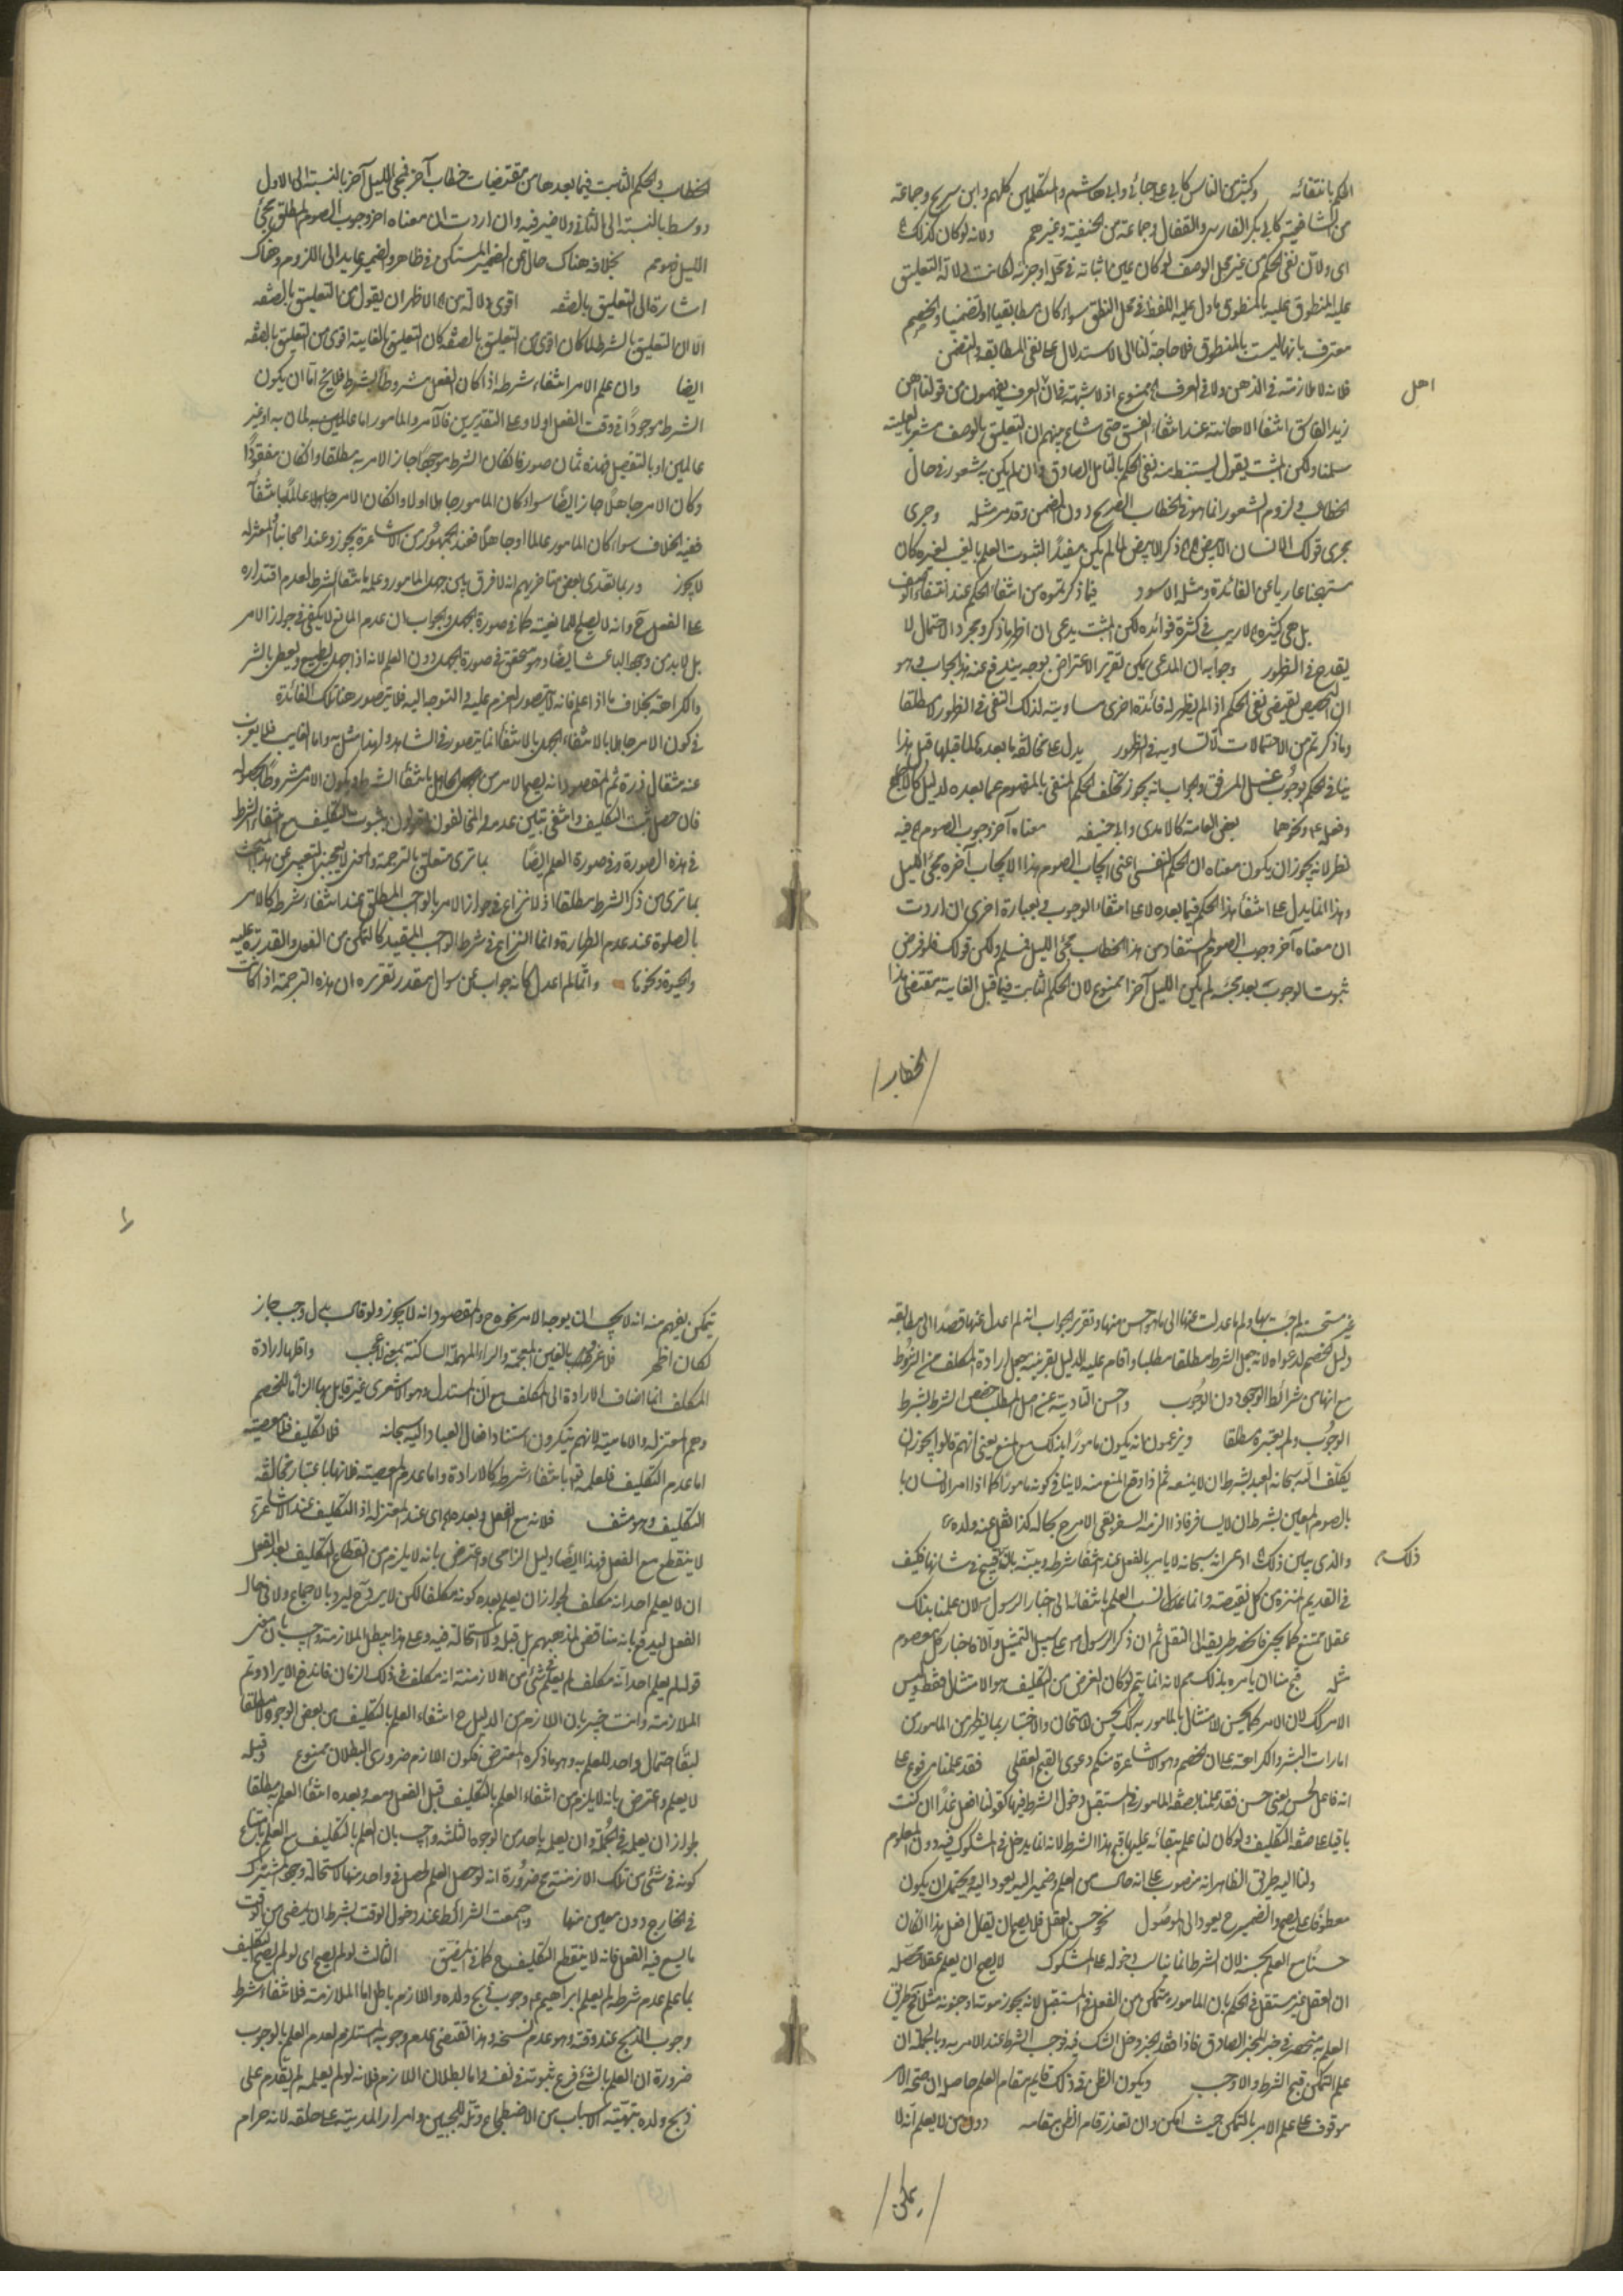 الحكم بانتفائه وكثير من الناس كابي على جبائي وابي هاشم والمتكلمين كلهم وابن سريج وجماعة
من الشافعية كابي بكر الفارسي والقفال وجماعة من الحنفية وغيرهم ولانه لو كان كذلك
اى ولان نفى الحكم من غير محل الوصف لو كان عين اثباته فى محله او جزئه لكانت دلالة التعليق
عليه المنطوق عليه بالمنطوق ما دل عليه اللفظ فى محل النطق سواء كان مطابقيا او تضمنيا والخصم
معترف بانها ليست بالمنطوق فلا حاجة لنا الى الاستدلال على نفى المطابقة والتضمن
فلانه لا ملازمة فى الذهن ولا فى العرف ممنوع اذ لا شبهة فى ان العرف يفهمون من قولنا اهن
اهل
زيد الفاسق انتفاء الاهانة عند انتفاء الفسق حتى شاع بينهم ان التعليق بالوصف مشعر بالعلية
سلمنا ولكن المثبت يقول يستنبط منه نفى الحكم بالتامل الصادق وان لم يكن به شعور فى حال
الخطاب ولزوم الشعور انما هو فى الخطاب الصريح دون الضمن وقد مر مثله وجرى
مجرى قولك الانسان الابيض ذكر الابيض لما لم يكن مفيدا لثبوت العلم بالغيب لغيره كان
مستهجنا عاريا عن الفائدة ومثله الاسود فيما ذكرتموه من انتفاء الحكم عند انتفاء الوصف
بل هى كثيرة لا ريب فى كثرة فوائده لكن المثبت يدعى ان اظهرها ذكر ومجرد الاحتمال لا
يقدح فى الظهور وجوابه ان المدعى يمكن تقرير الاعتراض بوجه يندفع عنه هذا الجواب وهو
ان التخصيص يقتضى نفى الحكم اذا لم يظهر له فائدة اخرى مساوية لذلك النفى فى الظهور لا مطلقا
وما ذكرتم من الاحتمالات لا تساويه فى الظهور يدل على مخالفة ما بعدها لما قبلها قيل هذا
ينافى الحكم بوجوب غسل المرفق والجواب انه يجوز تخلف الحكم المنفى بالمفهوم عما بعده لدليل كالاجماع
وفعله ونحوهما بعض العامة كالامدى وابي حنيفة معناه آخر وجوب الصوم فيه
نظر لانه يجوز ان يكون معناه ان الحكم النفسى اعنى ايجاب الصوم بهذا الايجاب آخره مجئ الليل
وهذا انما يدل على انتفاء هذا الحكم فيما بعده لا على انتفاء الوجوب وبعبارة اخرى ان اردت
ان معناه آخر وجوب الصوم المستفاد من هذا الخطاب مجئ الليل فمسلم ولكن قولك فلو فرض
ثبوت الوجوب بعد مجيئه لم يكن الليل آخرا ممنوع لان الحكم الثابت فيما قبل الغاية مقتضى هذا
الخطاب
الخطاب والحكم الثابت فيما بعدها من مقتضيات خطاب آخر فمجئ الليل آخر بالنسبة الى الاول
ووسط بالنسبة الى الثانى ولا ضير فيه وان اردت ان معناه آخر وجوب الصوم المطلق مجئ
الليل فهو مم بخلافه هناك حال من الضمير المستكن فى ظاهر والضمير عايد الى اللزوم وهناك
اشارة الى التعليق بالصفة اقوى دلالة من الاظهر ان يقول من التعليق بالصفة
الا ان التعليق بالشرط لما كان اقوى من التعليق بالصفة كان التعليق بالغاية اقوى من التعليق بالصفة
ايضا وان علم الامر انتفاء شرطه اذا كان الفعل مشروطا بشرط فلا يخ اما ان يكون
الشرط موجودا فى وقت الفعل اولا وعلى التقديرين فالآمر والمامور اما عالمان به او غير
عالمين او بالتفصيل فهذه ثمان صور فان كان الشرط موجودا جاز الامر به مطلقا وان كان مفقودا
وكان الآمر جاهلا جاز ايضا سواء كان المامور جاهلا اولا وان كان الآمر عالما بانتفاء
ففيه الخلاف سواء كان المامور عالما او جاهلا فعند الجمهور من الاشاعرة يجوز وعند اصحابنا والمعتزلة
لا يجوز وربما تعدى بعض متاخريهم انه لا فرق بين جهل المامور وعلمه بانتفاء الشرط لعدم اقتداره
على الفعل ح وانه لا يصلح للمانعية كما فى صورة الجهل والجواب ان عدم المانع لا يكفى فى جواز الامر
بل لابد من وجود الباعث ايضا وهو متحقق فى صورة الجهل دون العلم لانه اذا جهل يطيع ويعطى بالبشر
والكراهة بخلاف ما اذا علم فانه لا يتصور العزم عليه والتوجه اليه فلا يتصور هناك تلك الفائدة
فى كون الآمر جاهلا بالانتفاء الجهل بالانتفاء انما يتصور فى الشاهد ولهذا مثل به واما الغايب فلا يعزب
عنه مثقال ذرة ثم المقصود انه يصح الامر من الجاهل بانتفاء الشرط ويكون الامر مشروطا بحصوله
فان حصل ثبت التكليف وانتفى تبين عدمه والمخالفون يقولون بثبوت التكليف مع انتفاء الشرط
فى هذه الصورة وفى صورة العلم ايضا بما ترى متعلق بالترجمة والمعنى لا يعجبنى التعبير عن هذا المبحث
بما ترى من ذكر الشرط مطلقا اذ لا نزاع فى جواز الامر بالواجب المطلق عند انتفاء شرطه كالامر
بالصلوة عند عدم الطهارة وانما النزاع فى شرط الواجب المقيد كالتمكن من الفعل والقدرة عليه
والحيوة ونحوها وانما لم اعدل كانه جواب عن سؤال مقدر تقريره ان هذه الترجمة اذا كانت
غير مستحسنة لم جئت بها ولم ما عدلت عنها الى ما هو احسن منها وتقرير الجواب انه لم اعدل عنها قصدا الى مطابقة
دليل الخصم لدعواه لانه جعل الشرط مطلقا مطلبا واقام عليه الدليل بقرينة جعل ارادة المكلف من الشروط
مع انها من شرائط الوجود دون الوجوب واحسن التادية عن اصل المطلب تخصيص الشرط بشرط
الوجوب ولم يعتبره مطلقا ويزعمون انه يكون مامورا بذلك مع المنع يعنى انهم قالوا يجوز ان
يكلف الله سبحانه العبد بشرط ان لا يمنعه ثم اذا وقع المنع منه لا ينافى كونه مامورا كما اذا امر الانسان
بالصوم المعين بشرط ان لا يسافر فاذا الزمه السفر بقى الامر ح بحاله كذا نقل عنه ولده
والذى يبين ذلك ادعى انه سبحانه لا يامر بالفعل عند انتفاء شرطه وبينه بانه قبيح فى شاننا فكيف
ذلك
فى القديم المنزه عن كل نقيصة وانما نسب العلم بانتفائه الى اخبار الرسول لان علمنا بذلك
عقلا ممتنع كما يجئ فانحصر طريقه الى النقل ثم ان ذكر الرسول على سبيل التمثيل والا فاخبار كل معصوم
مثله قبح منا ان يامره بذلك مم لانه انما يتم لو كان الغرض من التكليف هو الامتثال فقط وليس
الامر كك لان الامر كما يحسن لامتثال المامور به كك يحسن للامتحان والاختبار بما يظهر من المامور من
امارات البشر والكراهة على ان الخصم وهو الاشاعرة منكم دعوى القبح العقلى فقد علمنا مرفوع على
انه فاعل لحسن يعنى حسن فقد علمنا بصفة المامور فى المستقبل دخول الشرط فيها كقولنا افعل غدا ان كنت
باقيا على صفة التكليف ولو كان لنا علم ببقائه عليها قبح هذا الشرط لانه انما يدخل فى المشكوك فيه دون المعلوم
ولنا اليه طريق الظاهر انه منصوب على انه حال من العلم وضمير اليه يعود اليه ويحتمل ان يكون
معطوفا على يصح والضمير ح يعود الى الموصول نحو حسن الفعل فلا يصح ان يقال افعل هذا ان كان
حسنا مع العلم بحسنه لان الشرط انما يناسب دخوله على المشكوك لا يصح ان يعلم عقلا
ان العقل غير مستقل فى الحكم بان المامور يتمكن من الفعل فى المستقبل لانه يجوز موته او جنونه مثلا طريق
العلم به منحصر فى خبر المخبر الصادق فاذا فقد الخبر دخل الشك فيه فوجب الشرط عند الامر به وبالجملة ان
علم التمكن قبح الشرط والا وجب ويكون الظن فى ذلك قايم مقام العلم حاصله ان صحة الامر
موقوف على علم الآمر بالتمكن حيث امكن وان تعذر قام الظن مقامه دون من لا يعلم انه لا
يمكن
يتمكن يفهم منه انه لا يجب ان يوجه الامر نحوه ح والمقصود انه لا يجوز ولو قال بدل وجب جاز
لكان اظهر فلا غرو بالغين المعجمة والراء المهملة الساكنة بمعنى لا عجب واقلها ارادة
المكلف انما اضاف الارادة الى المكلف مع ان المستدل وهو الاشعرى غير قابل بها الزاما للخصم
وهم المعتزلة والامامية لانهم ينكرون استناد افعال العباد اليه سبحانه فلا تكليف فلا معصية
اما عدم التكليف فلعلمه تعالى بانتفاء شرطه كالارادة واما عدم المعصية فلانها باعتبار مخالفة
التكليف وهو منتف فلانه مع الفعل وبعده اى عند المعتزلة اذ التكليف عند الاشاعرة
لا ينقطع مع الفعل فهذا ايضا دليل الزامى واعترض بانه لا يلزم من انقطاع التكليف بعد الفعل
ان لا يعلم احد انه مكلف لجواز ان يعلم بعده كونه مكلفا لكن لا يرد بالاجماع ولا فى حال
الفعل ليدفع بانه مناقض لمذهبهم بل قبل ولا استحالة فيه وعلى هذا يبطل الملازمة واجيب بان معنى
قوله لم يعلم احد انه مكلف لم يعلم فى شئ من الازمنة انه مكلف فى ذلك الزمان فاندفع الايراد وتم
الملازمة وانت خبير بان اللازم من الدليل ح انتفاء العلم بالتكليف من بعض الوجوه لا مطلقا
لبقاء احتمال واحد للعلم به وهو ما ذكره المعترض فكون اللازم ضرورى البطلان ممنوع وقبله
لا يعلم واعترض بانه لا يلزم من انتفاء العلم بالتكليف قبل الفعل ومعه وبعده انتفاء العلم به مطلقا
لجواز ان يعلم فى الجملة وان يعلم باحد من الوجوه الثلثة واجيب بان العلم بالتكليف مع العلم بامتناع
كونه فى شئ من تلك الازمنة مح ضرورة انه لو حصل العلم لحصل فى واحد منها لاستحالة وجود المشترك
فى الخارج دون معين منها واجتمعت الشرائط عند دخول الوقت بشرط ان يمضى من الوقت
ما يسع فيه الفعل فانه لا ينقطع التكليف ح كما فى المضيق الثالث لو لم يصح اى لو لم يصح التكليف
بما علم عدم شرطه لم يعلم ابراهيم عم وجوب ذبح ولده واللازم باطل اما الملازمة فلانتفاء شرط
وجوب الذبح عند وقته وهو عدم نسخه وهذا يقتضى عدم وجوبه المستلزم لعدم العلم بالوجوب
ضرورة ان العلم بالشئ فرع ثبوته فى نفسه واما بطلان اللازم فلانه لو لم يعلمه لم يقدم على
ذبح ولده بتهيئة الاسباب من الاضطجاع وتله للجبين وامرار المدية على حلقه لانه حرام